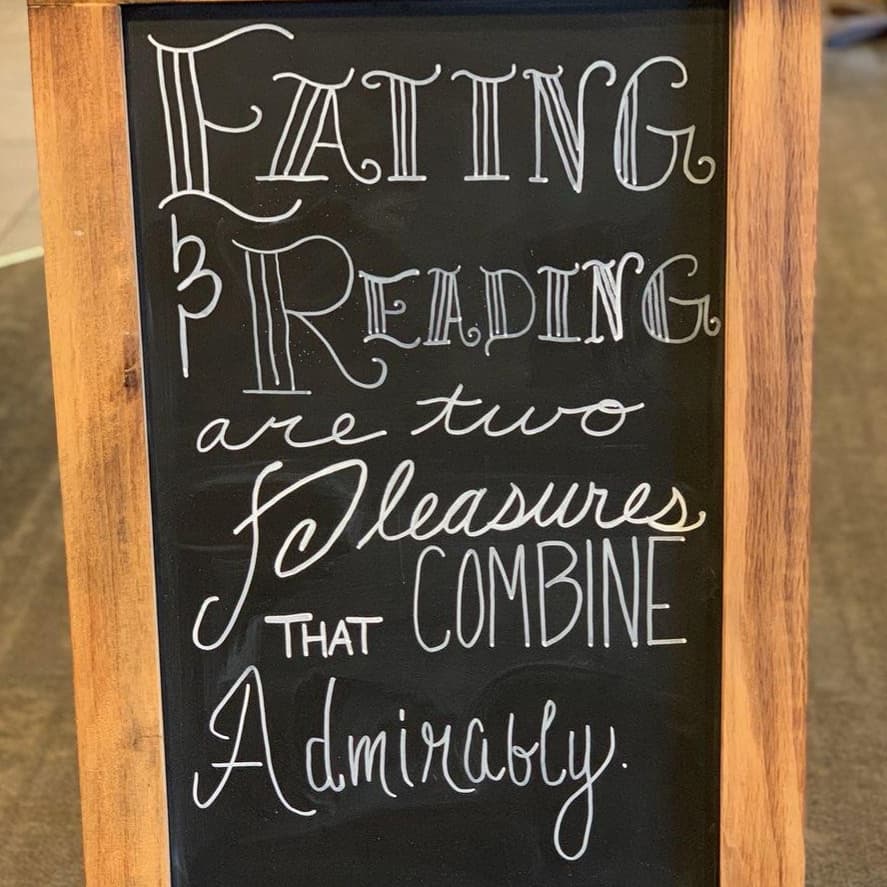 EATING
& READING
are two
Pleasures
THAT COMBINE
Admirably.